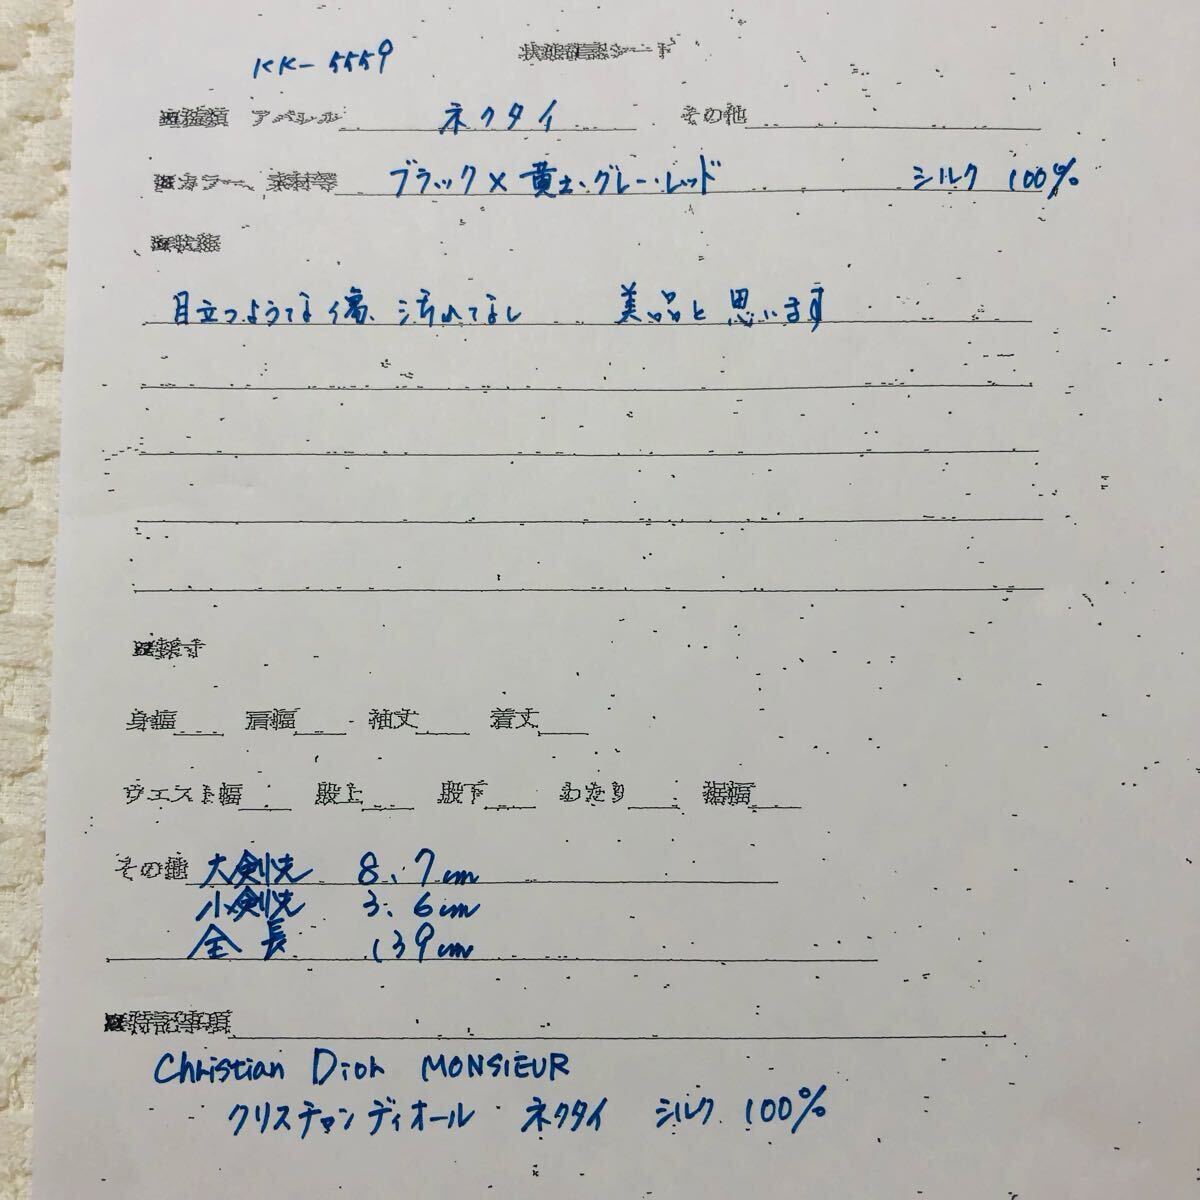 KK-5559 状態確認シート
※種類 アパレル ネクタイ その他
※カラー、素材等 ブラック×黄土・グレー・レッド シルク 100%
※状態
目立つような傷、汚れてなし 美品と思います
※採寸
身幅 肩幅 袖丈 着丈
ウエスト幅 股上 股下 わたり 裾幅
その他 大剣先 8.7cm
小剣先 3.6cm
全長 139cm
※特記事項
Christian Dior MONSIEUR
クリスチャンディオール ネクタイ シルク 100%